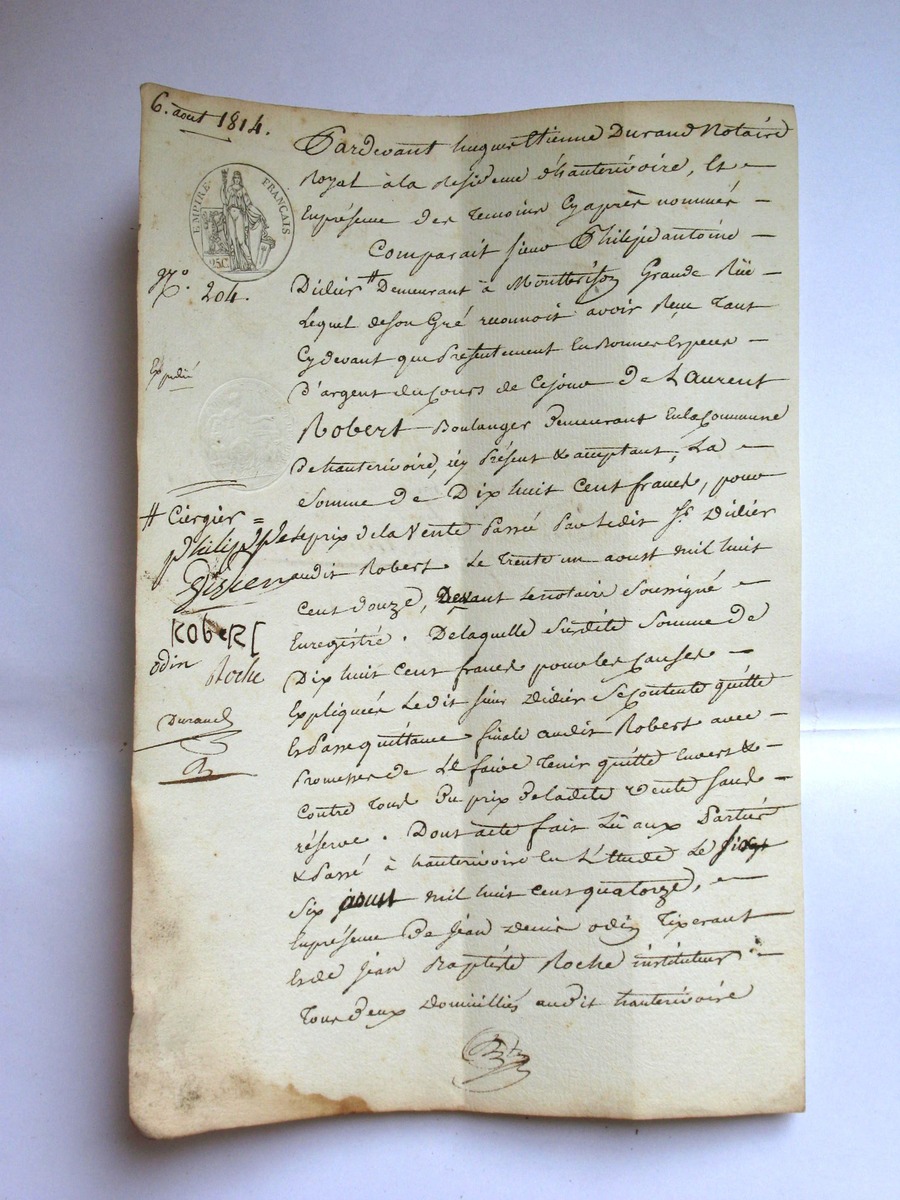 6. aout 1814.
EMPIRE FRANÇAIS
25 C
Nº. 204.
Expédié
# Ciergier =
Philippe
Didier
RObERt
odin
Roche
Durand
Pardevant hugues Etienne Durand Notaire
Royal à la Résidence d'hauterivoire, Et =
En présence des Temoins Cyaprès nommés =
Comparait sieur Philippe antoine =
Didier # Demeurant à Montbrison Grande Rüe =
Lequel deson Gré reconnoit avoir Reçu Tant
Cydevant que Présentement En Bonnes Especes =
D'argent du Cours de Cejour De Laurent
Robert Boulanger Demeurant En la Commune
De hauterivoire, icy Présent & acceptant, La =
Somme De Dix huit Cent francs, pour
le prix de la Vente Passée Par Ledit Sr. Didier
audit Robert Le Trente un aoust mil huit
Cent Douze, Devant Lenotaire Soussigné =
Enregistré. Delaquelle Susdite Somme De
Dix huit Cent francs pour les Causes =
Expliquées Ledit sieur Didier Se Contente quitte
Et Passe quittance finale audit Robert avec =
Promesses de Le faire Tenir quitte Envers & =
Contre Tous Du prix Deladite Vente Sans =
réserve. Dont acte fait Lû aux Parties
& Passé à hauterivoire En L'Etude Le
Six aoust mil huit Cent quatorze, =
En présence De Jean Denis odin Tixerant
Et de Jean Baptiste Roche instituteur =
Tous Deux Domiciliés audit hauterivoire